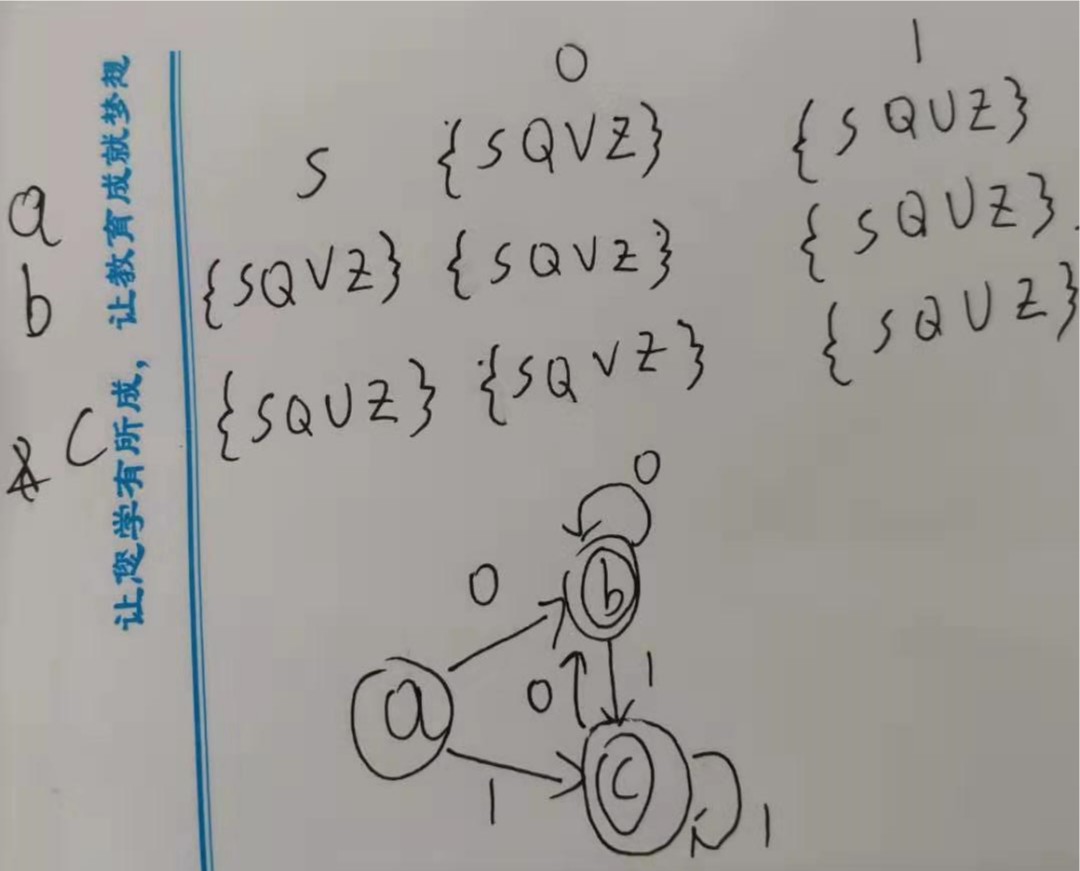 0 1
a S {SQVZ} {SQUZ}
b {SQVZ} {SQVZ} {SQUZ}
C {SQUZ} {SQVZ} {SQUZ}
让您学有所成，让教育成就梦想
0
0 b
0 1
a
1 C 1